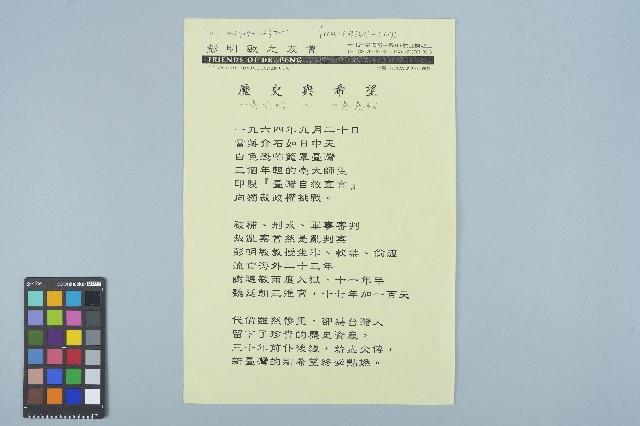 彭明敏之友會
FRIENDS OF DR. PENG
歷史與希望
一九六四年九月二十日
當蔣介石如日中天
白色恐怖籠罩臺灣
三個年輕的臺大師生
印製『臺灣自救宣言』
向獨裁政權挑戰。
被捕、刑求、軍事審判
叛亂案當然是亂判案
彭明敏教授坐牢、軟禁、偷渡
流亡海外二十三年
謝聰敏兩度入獄、十一年半
魏廷朝三進宮，十七年加一百天
代價雖然慘重，卻為台灣人
留下了珍貴的歷史資產。
三十年前仆後繼，薪盡火傳，
新臺灣的新希望終必點燃。